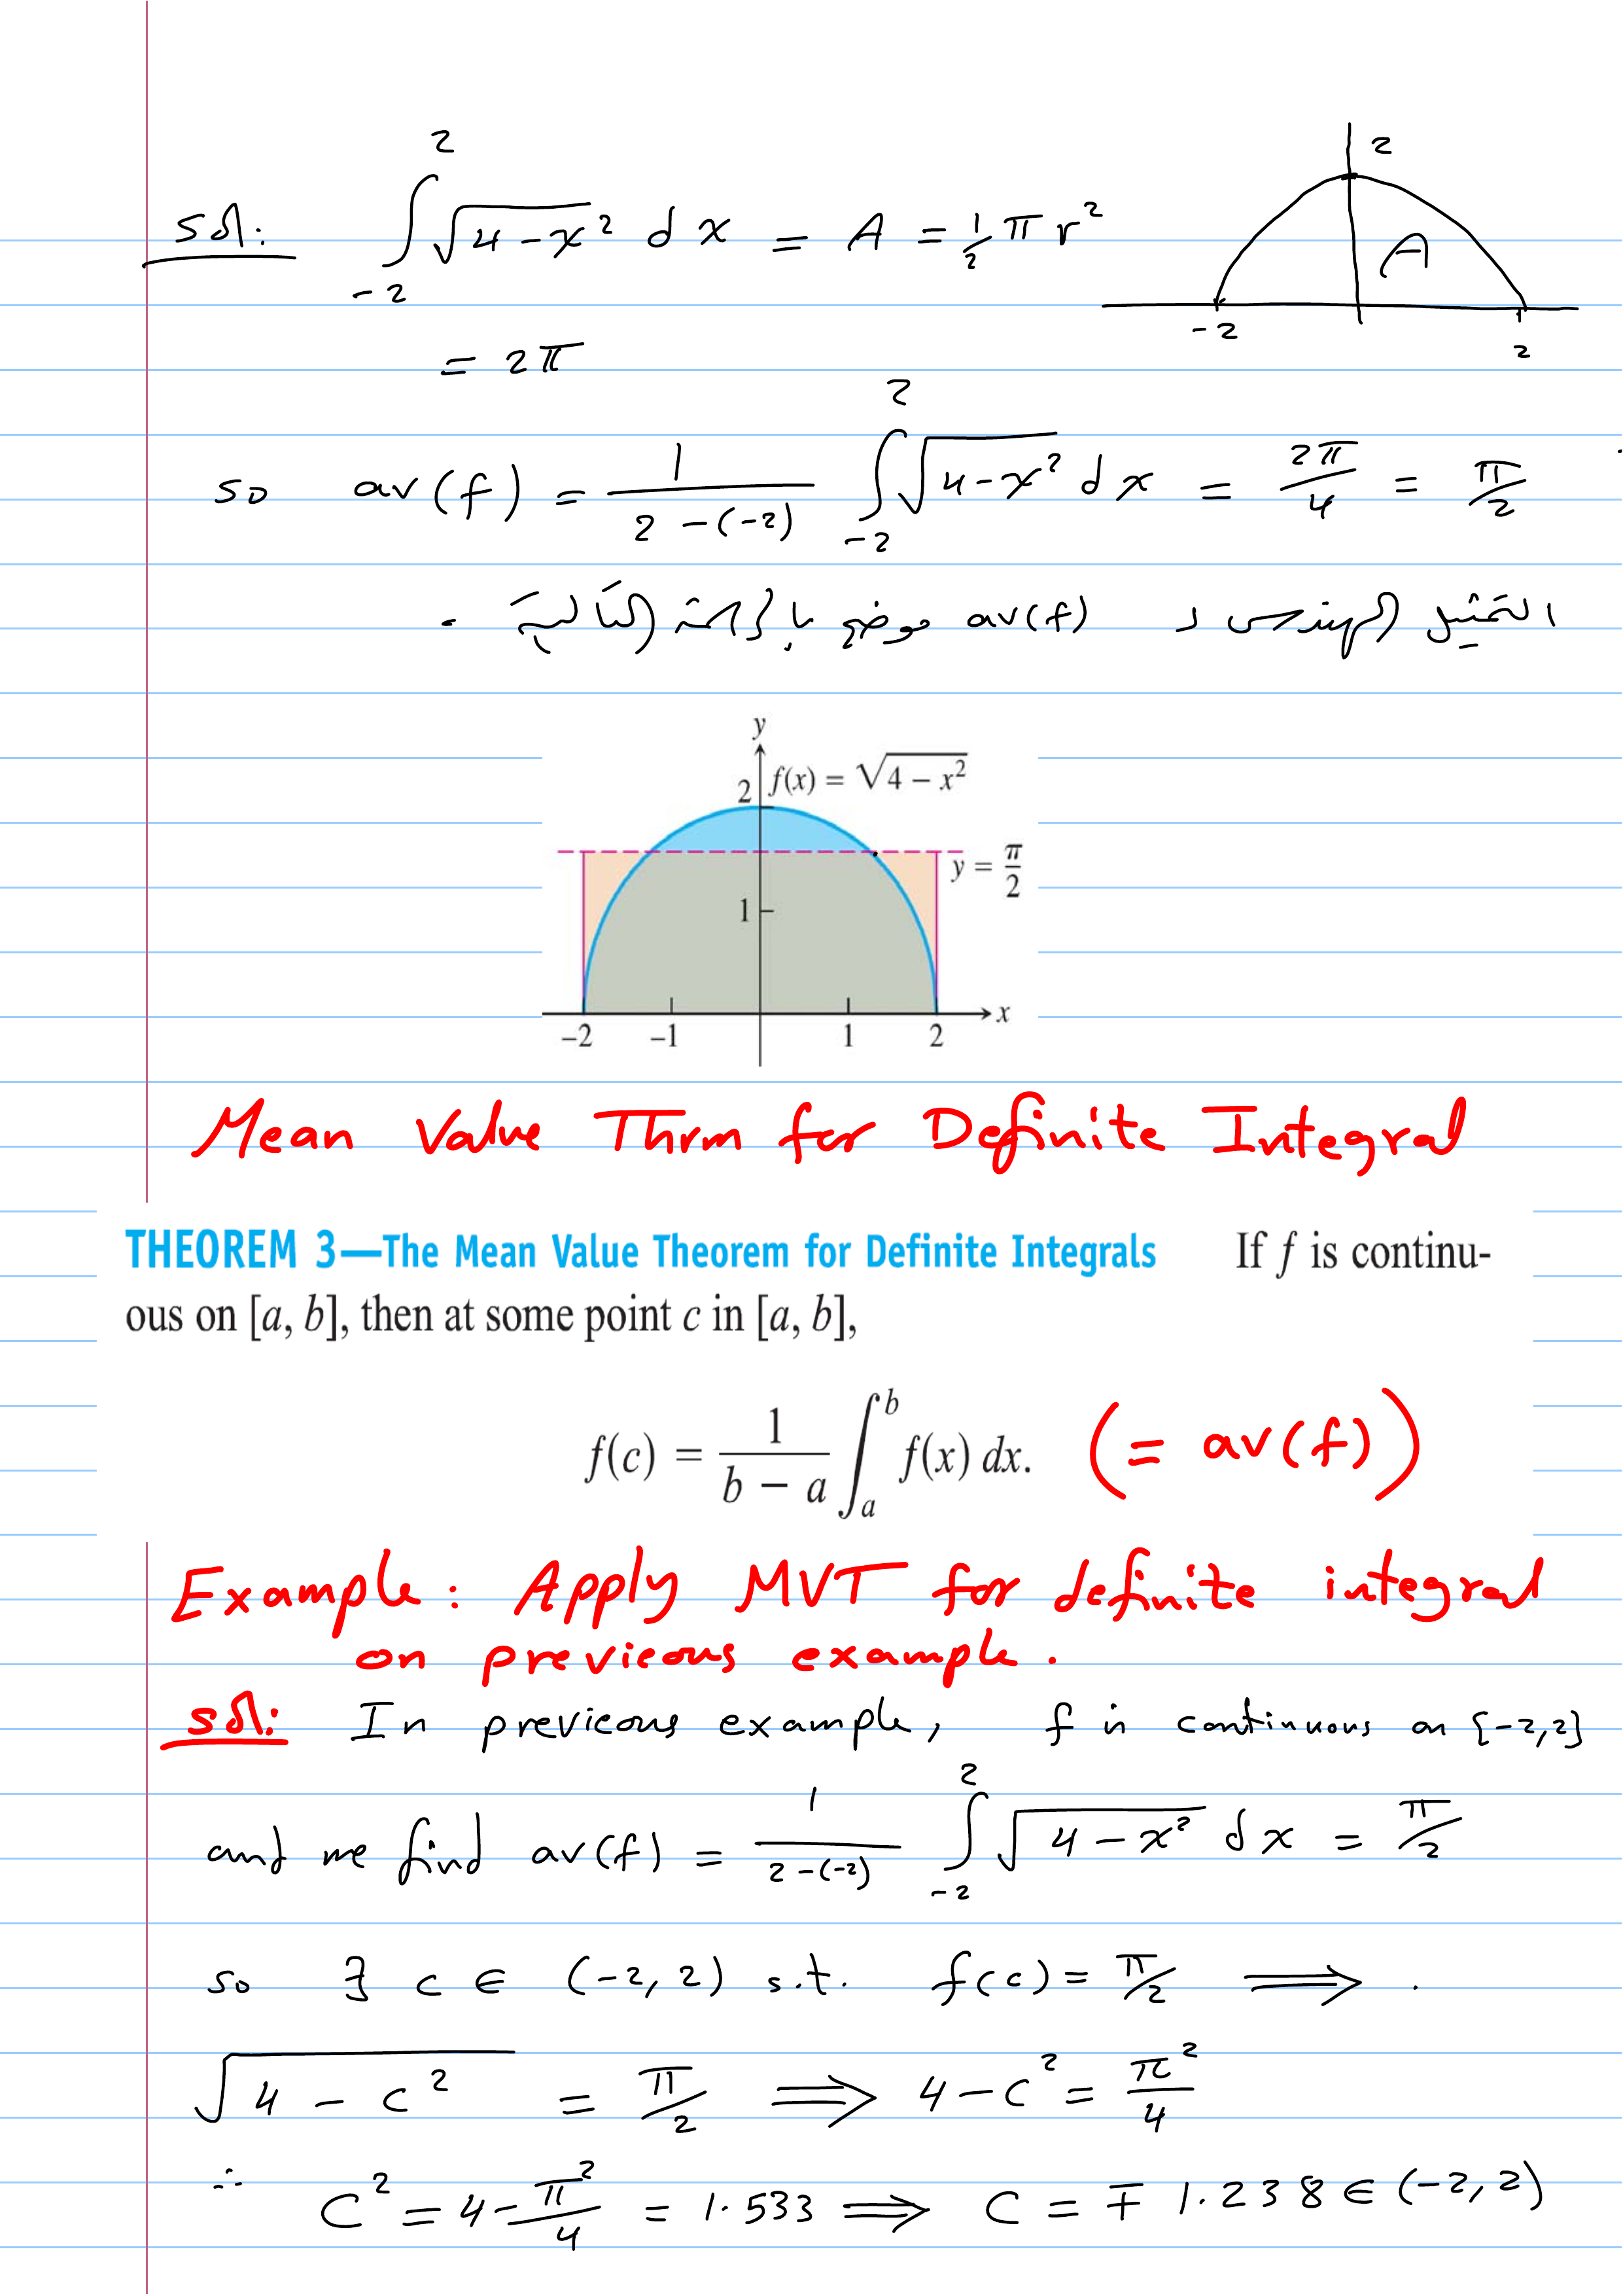 sol: ∫_{-2}^{2} √(4-x²) dx = A = ½ π r²
2
A
-2 2
= 2π
so av(f) = 1/(2-(-2)) ∫_{-2}^{2} √(4-x²) dx = 2π/4 = π/2
التمثيل الهندسي لـ av(f) موضح بالرسمة التالية .
y
2 f(x) = √(4 − x²)
y = π/2
1
−2 −1 1 2 x
Mean Value Thrm for Definite Integral
THEOREM 3—The Mean Value Theorem for Definite Integrals If f is continu-
ous on [a, b], then at some point c in [a, b],
f(c) = 1/(b − a) ∫_a^b f(x) dx. (= av(f))
Example: Apply MVT for definite integral
on previous example.
sol: In previous example, f is continuous on [-2,2]
and we find av(f) = 1/(2-(-2)) ∫_{-2}^{2} √(4-x²) dx = π/2
so ∃ c ∈ (-2,2) s.t. f(c) = π/2 ⟹ .
√(4-c²) = π/2 ⟹ 4-c² = π²/4
∴ C² = 4-π²/4 = 1.533 ⟹ C = ∓ 1.238 ∈ (-2,2)